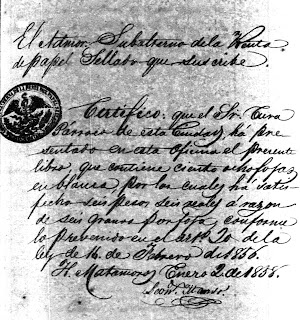 El Admor. Subalterno de la Renta
de papel Sellado que suscribe.
Certifico: que el Sr. Cura
Parroco de esta Ciudad, ha pre
sentado en esta Oficina el presente
libro, que contiene ciento ocho fojas
en blanco, por las cuales ha satis
fecho seis pesos seis reales á razon
de seis granos por foja, conforme
lo prevenido en el artº. 20 de la
ley de 14 de Febrero de 1856.
H. Matamoros, Enero 2 de 1858.